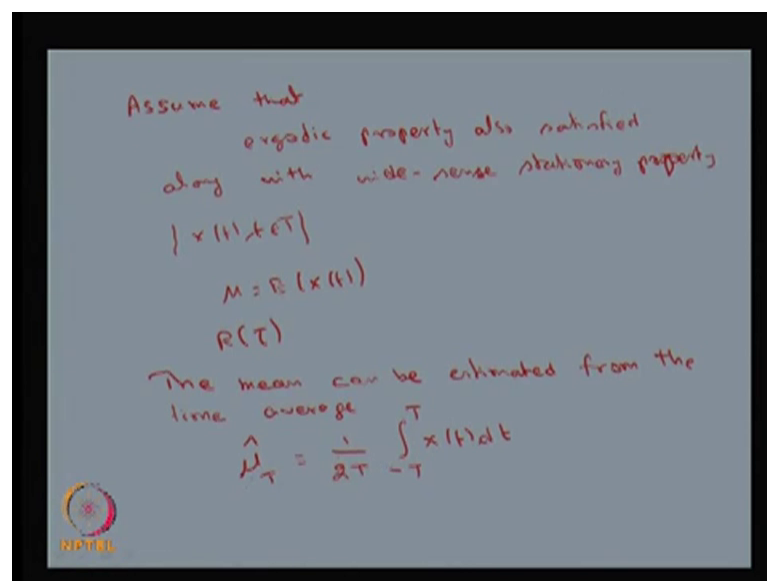 Assume that
ergodic property also satisfied
along with wide-sense stationary property
{x(t), t∈T}
M = E(x(t))
R(τ)
The mean can be estimated from the
time average
μ̂_T = 1/2T ∫_{-T}^{T} x(t)dt
NPTEL